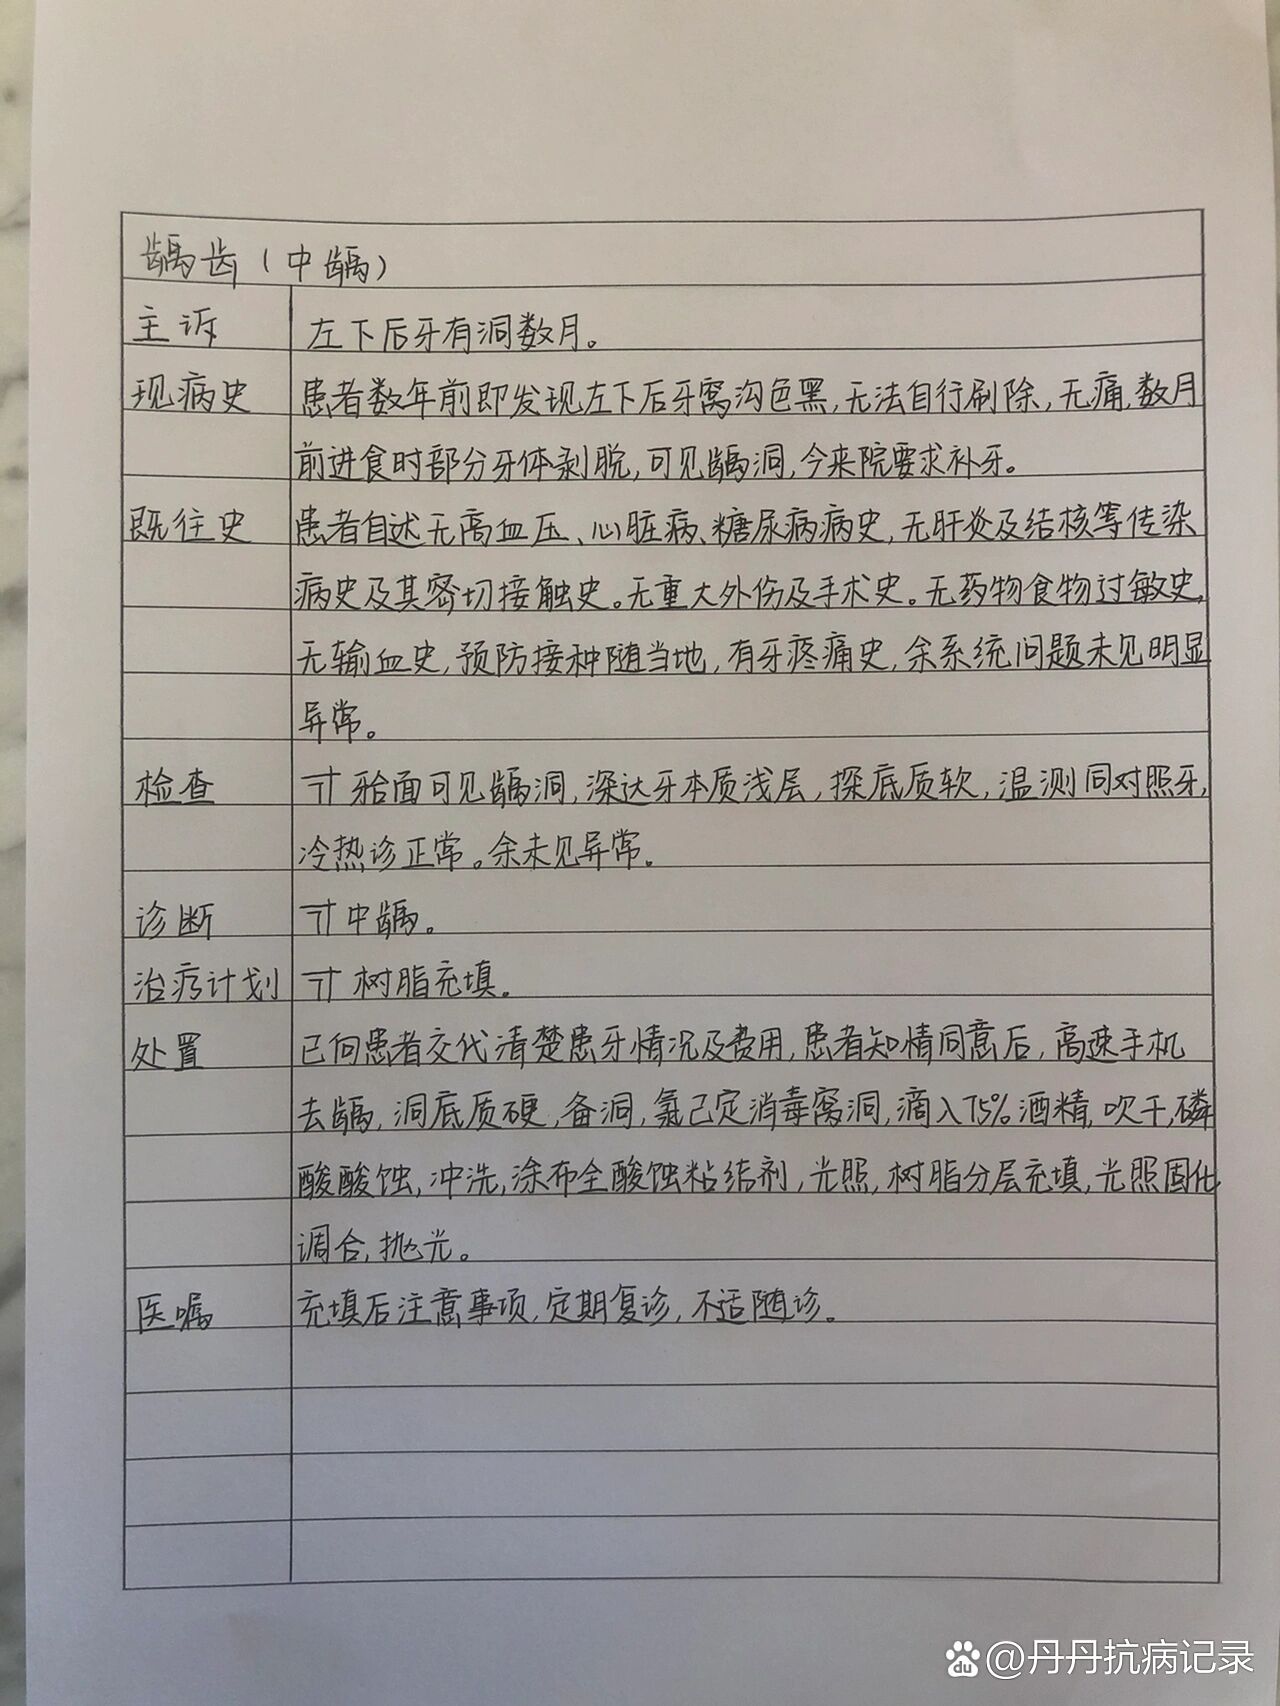 龋齿（中龋）
主诉 左下后牙有洞数月。
现病史 患者数年前即发现左下后牙窝沟色黑，无法自行刷除，无痛，数月
前进食时部分牙体剥脱，可见龋洞，今来院要求补牙。
既往史 患者自述无高血压、心脏病、糖尿病病史，无肝炎及结核等传染
病史及其密切接触史。无重大外伤及手术史。无药物食物过敏史，
无输血史，预防接种随当地，有牙疼痛史，余系统问题未见明显
异常。
检查 𬌗面可见龋洞，深达牙本质浅层，探底质软，温测同对照牙，
冷热诊正常。余未见异常。
诊断 中龋。
治疗计划 树脂充填。
处置 已向患者交代清楚患牙情况及费用，患者知情同意后，高速手机
去龋，洞底质硬，备洞，氯己定消毒窝洞，滴入75%酒精，吹干，磷
酸酸蚀，冲洗，涂布全酸蚀粘结剂，光照，树脂分层充填，光照固化
调合，抛光。
医嘱 充填后注意事项，定期复诊，不适随诊。
@丹丹抗病记录